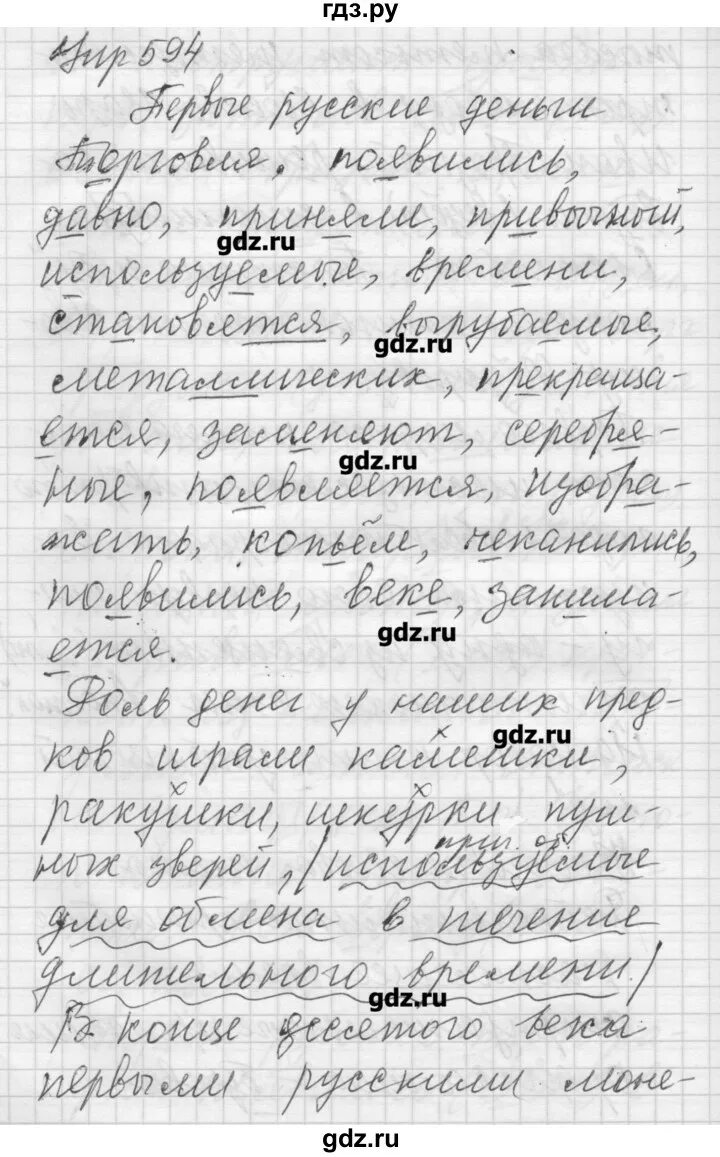 гдз.ру
Упр 594
Первые русские деньги
Торговля, появились,
давно, приняли, привычный,
gdz.ru
используемые, времени,
становятся, вырубаемые,
gdz.ru
металлических, прекраща-
ется, заменяют, серебря-
gdz.ru
ные, появляется, изобра-
жать, копьём, чеканились,
появились, веке, занима-
gdz.ru
ется.
Роль денег у наших пред-
gdz.ru
ков играли камешки,
ракушки, шкурки пуш-
прич. об.
ных зверей, /используемые
для обмена в течение
длительного времени./
gdz.ru
В конце десятого века
первыми русскими моне-
gdz.ru